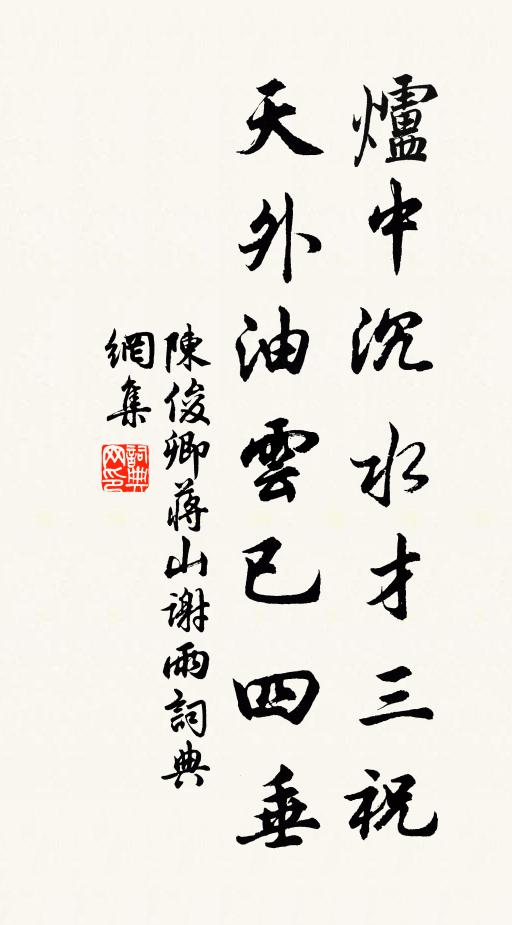 爐中沉水才三祝
天外油雲已四垂
陳俊卿蔣山謝雨詞典
網集
詞典
网印